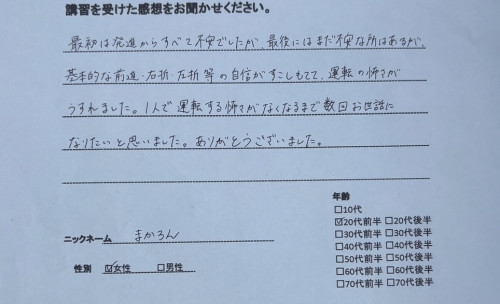 講習を受けた感想をお聞かせください。
最初は発進からすべて不安でしたが、最後にはまだ不安な所はあるが、
基本的な前進・右折・左折等の自信がすこしもてて、運転の怖さが
うすれました。1人で運転する怖さがなくなるまで数回お世話に
なりたいと思いました。ありがとうございました。
ニックネーム まかろん
性別 ☑女性 □男性
年齢
□10代
☑20代前半 □20代後半
□30代前半 □30代後半
□40代前半 □40代後半
□50代前半 □50代後半
□60代前半 □60代後半
□70代前半 □70代後半